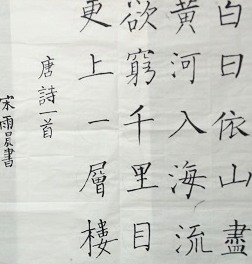 白日依山盡
黃河入海流
欲窮千里目
更上一層樓
唐詩一首
宋雨晨書